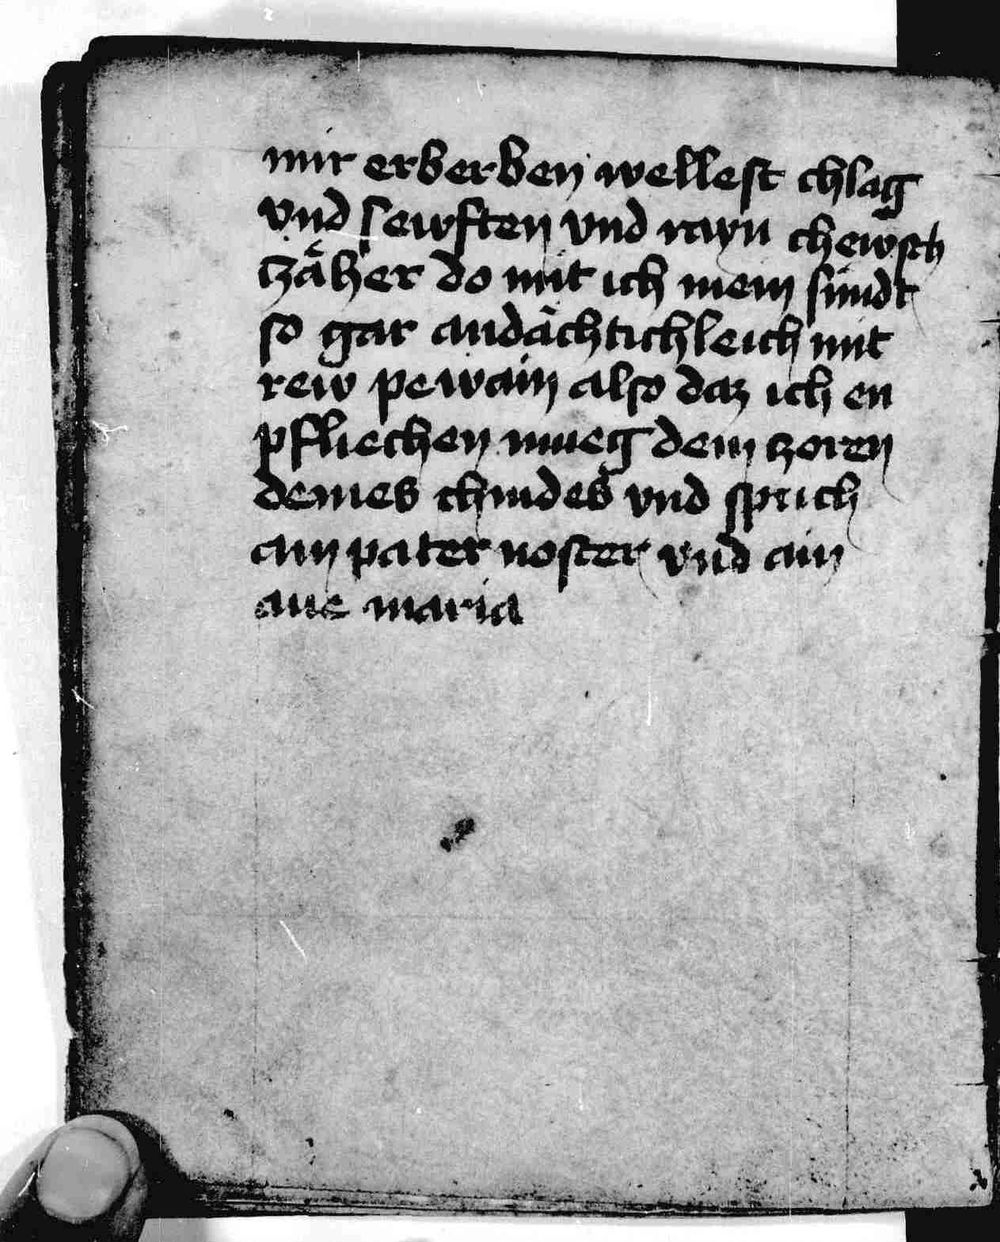 mir erberben wellest chlag
vnd sewften vnd rayn chewsch
zäher do mit ich mein sundt
so gar andächtichleich mit
rew pewain also daz ich en
pfliechen mueg dem zoren
deines chindes vnd sprich
ain pater noster vnd ain
aue maria